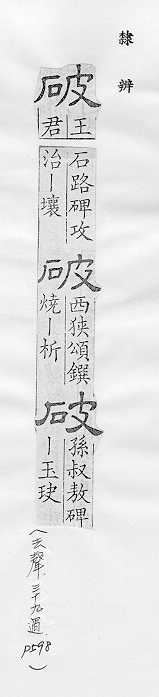 隸辨
破
王
君
石路碑攻
治|壞
破
西狹頌鐉
燒|析
破
孫叔敖碑
|玉玦
(去聲 三十九過 P598)